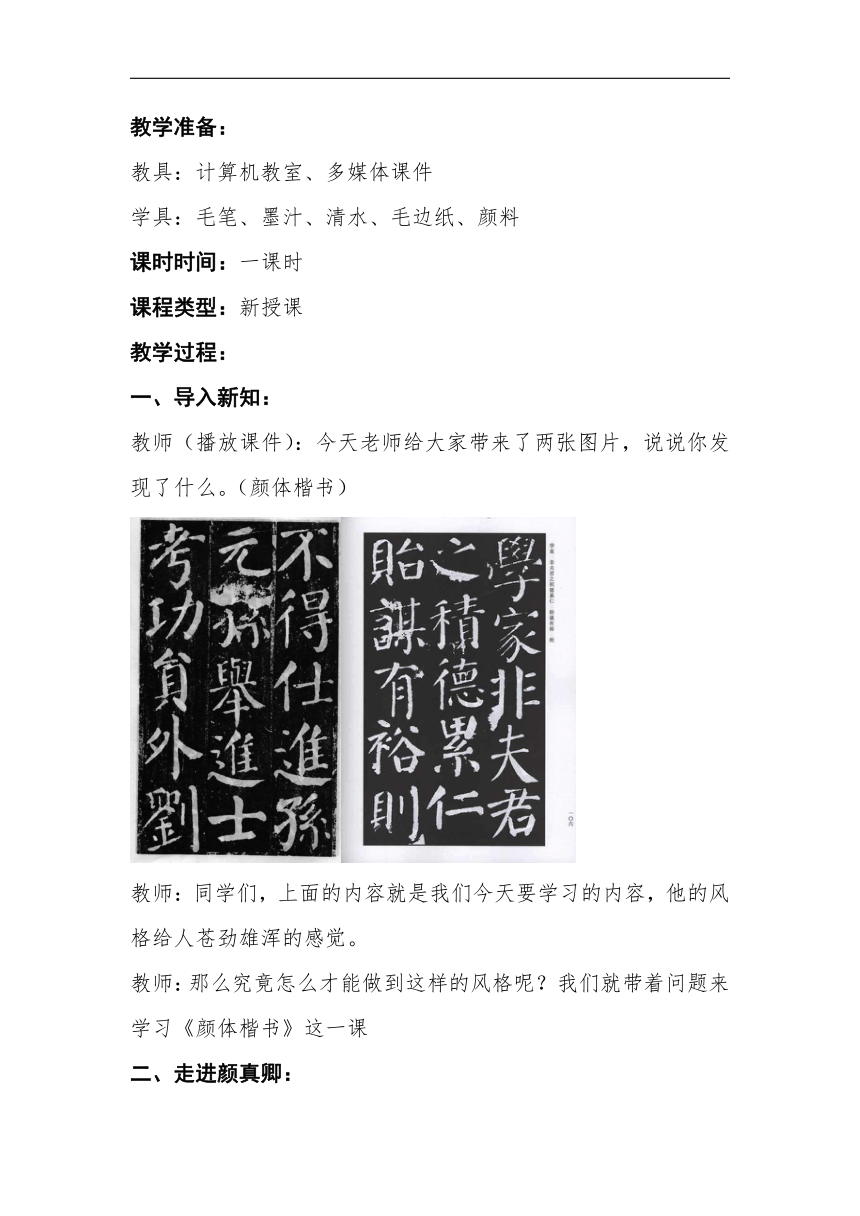 教学准备：
教具：计算机教室、多媒体课件
学具：毛笔、墨汁、清水、毛边纸、颜料
课时时间：一课时
课程类型：新授课
教学过程：
一、导入新知：
教师（播放课件）：今天老师给大家带来了两张图片，说说你发
现了什么。（颜体楷书）
不得仕進孫
元孫舉進士
考功貟外劉
學家 非夫君之積德累仁 貽謀有裕 則
學家非夫君
之積德累仁
貽謀有裕則
一〇六
教师：同学们，上面的内容就是我们今天要学习的内容，他的风
格给人苍劲雄浑的感觉。
教师：那么究竟怎么才能做到这样的风格呢？我们就带着问题来
学习《颜体楷书》这一课
二、走进颜真卿：